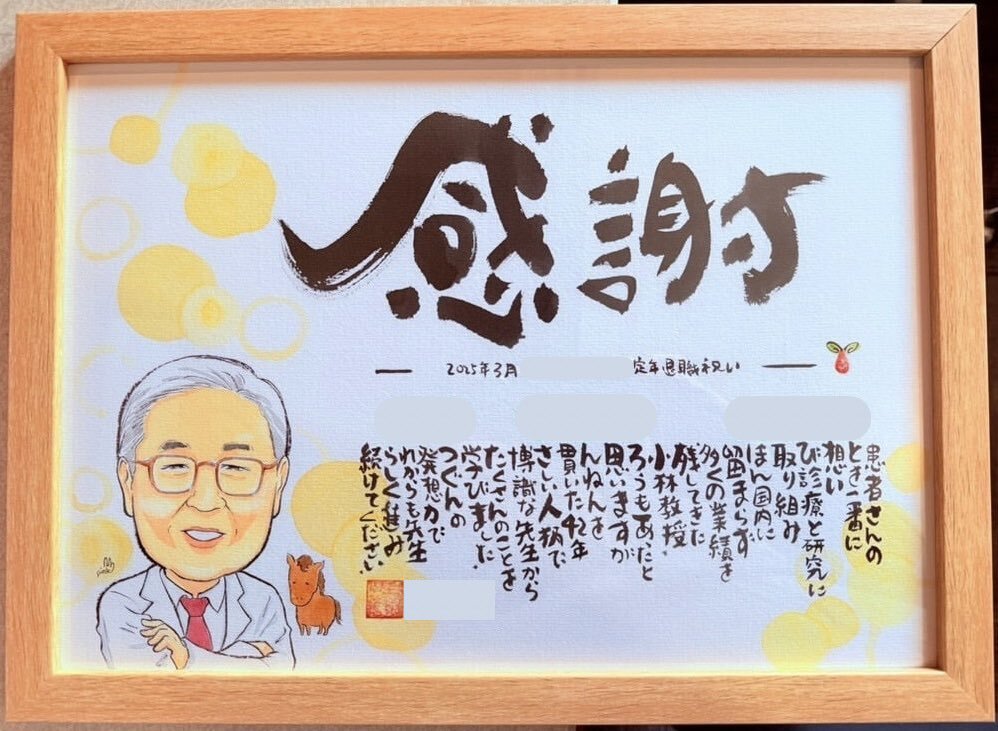 感謝
2025年3月
定年退職祝い
患者さんの
とを一番に
想い
び診療と研究に
取り組み
ほん国内に
留まらず
多くの業績を
残してきた
小林教授.
ろうもあったと
思いますが
んねんを
貫いた42年
さしい人柄で
博識な先生から
たくさんのことを
学びました.
つぐんの
発想力で
れからも先生
らしく進み
続けてください.